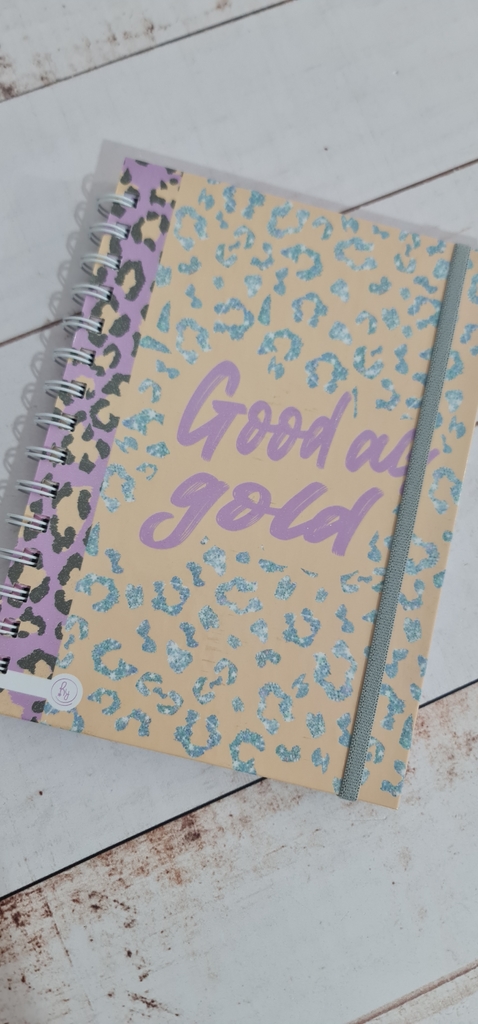 Good as
gold